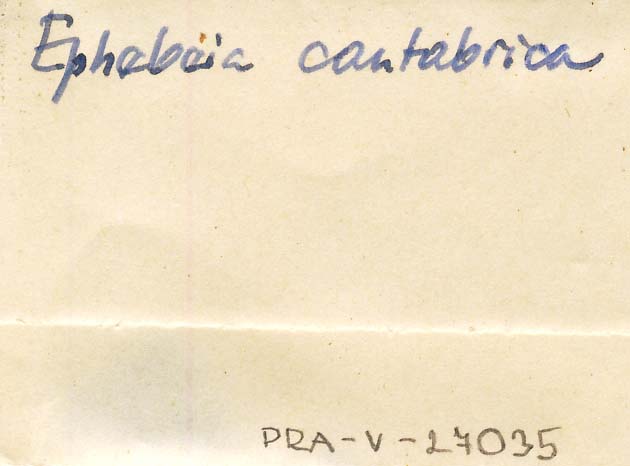 Ephebeia cantabrica
PRA-V-27035